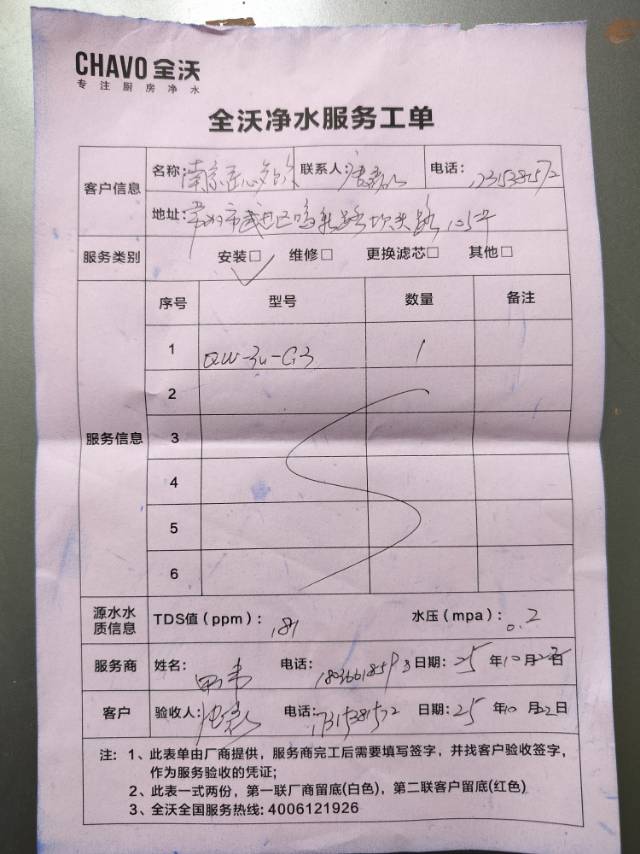 CHAVO 全沃
专注厨房净水
全沃净水服务工单
客户信息 名称: 南京 联系人: 电话:
地址: 常州市武进区鸣凰 路105号
服务类别 安装□ 维修□ 更换滤芯□ 其他□
序号 型号 数量 备注
1 QW-3u-G3 1
2
服务信息 3
4
5
6
源水水质信息 TDS值(ppm): 181 水压(mpa): 0.2
服务商 姓名: 电话: 日期: 25 年10月22日
客户 验收人: 电话: 17315381572 日期: 25 年10月22日
注: 1、此表单由厂商提供，服务商完工后需要填写签字，并找客户验收签字，
作为服务验收的凭证;
2、此表一式两份，第一联厂商留底(白色)，第二联客户留底(红色)
3、全沃全国服务热线: 4006121926